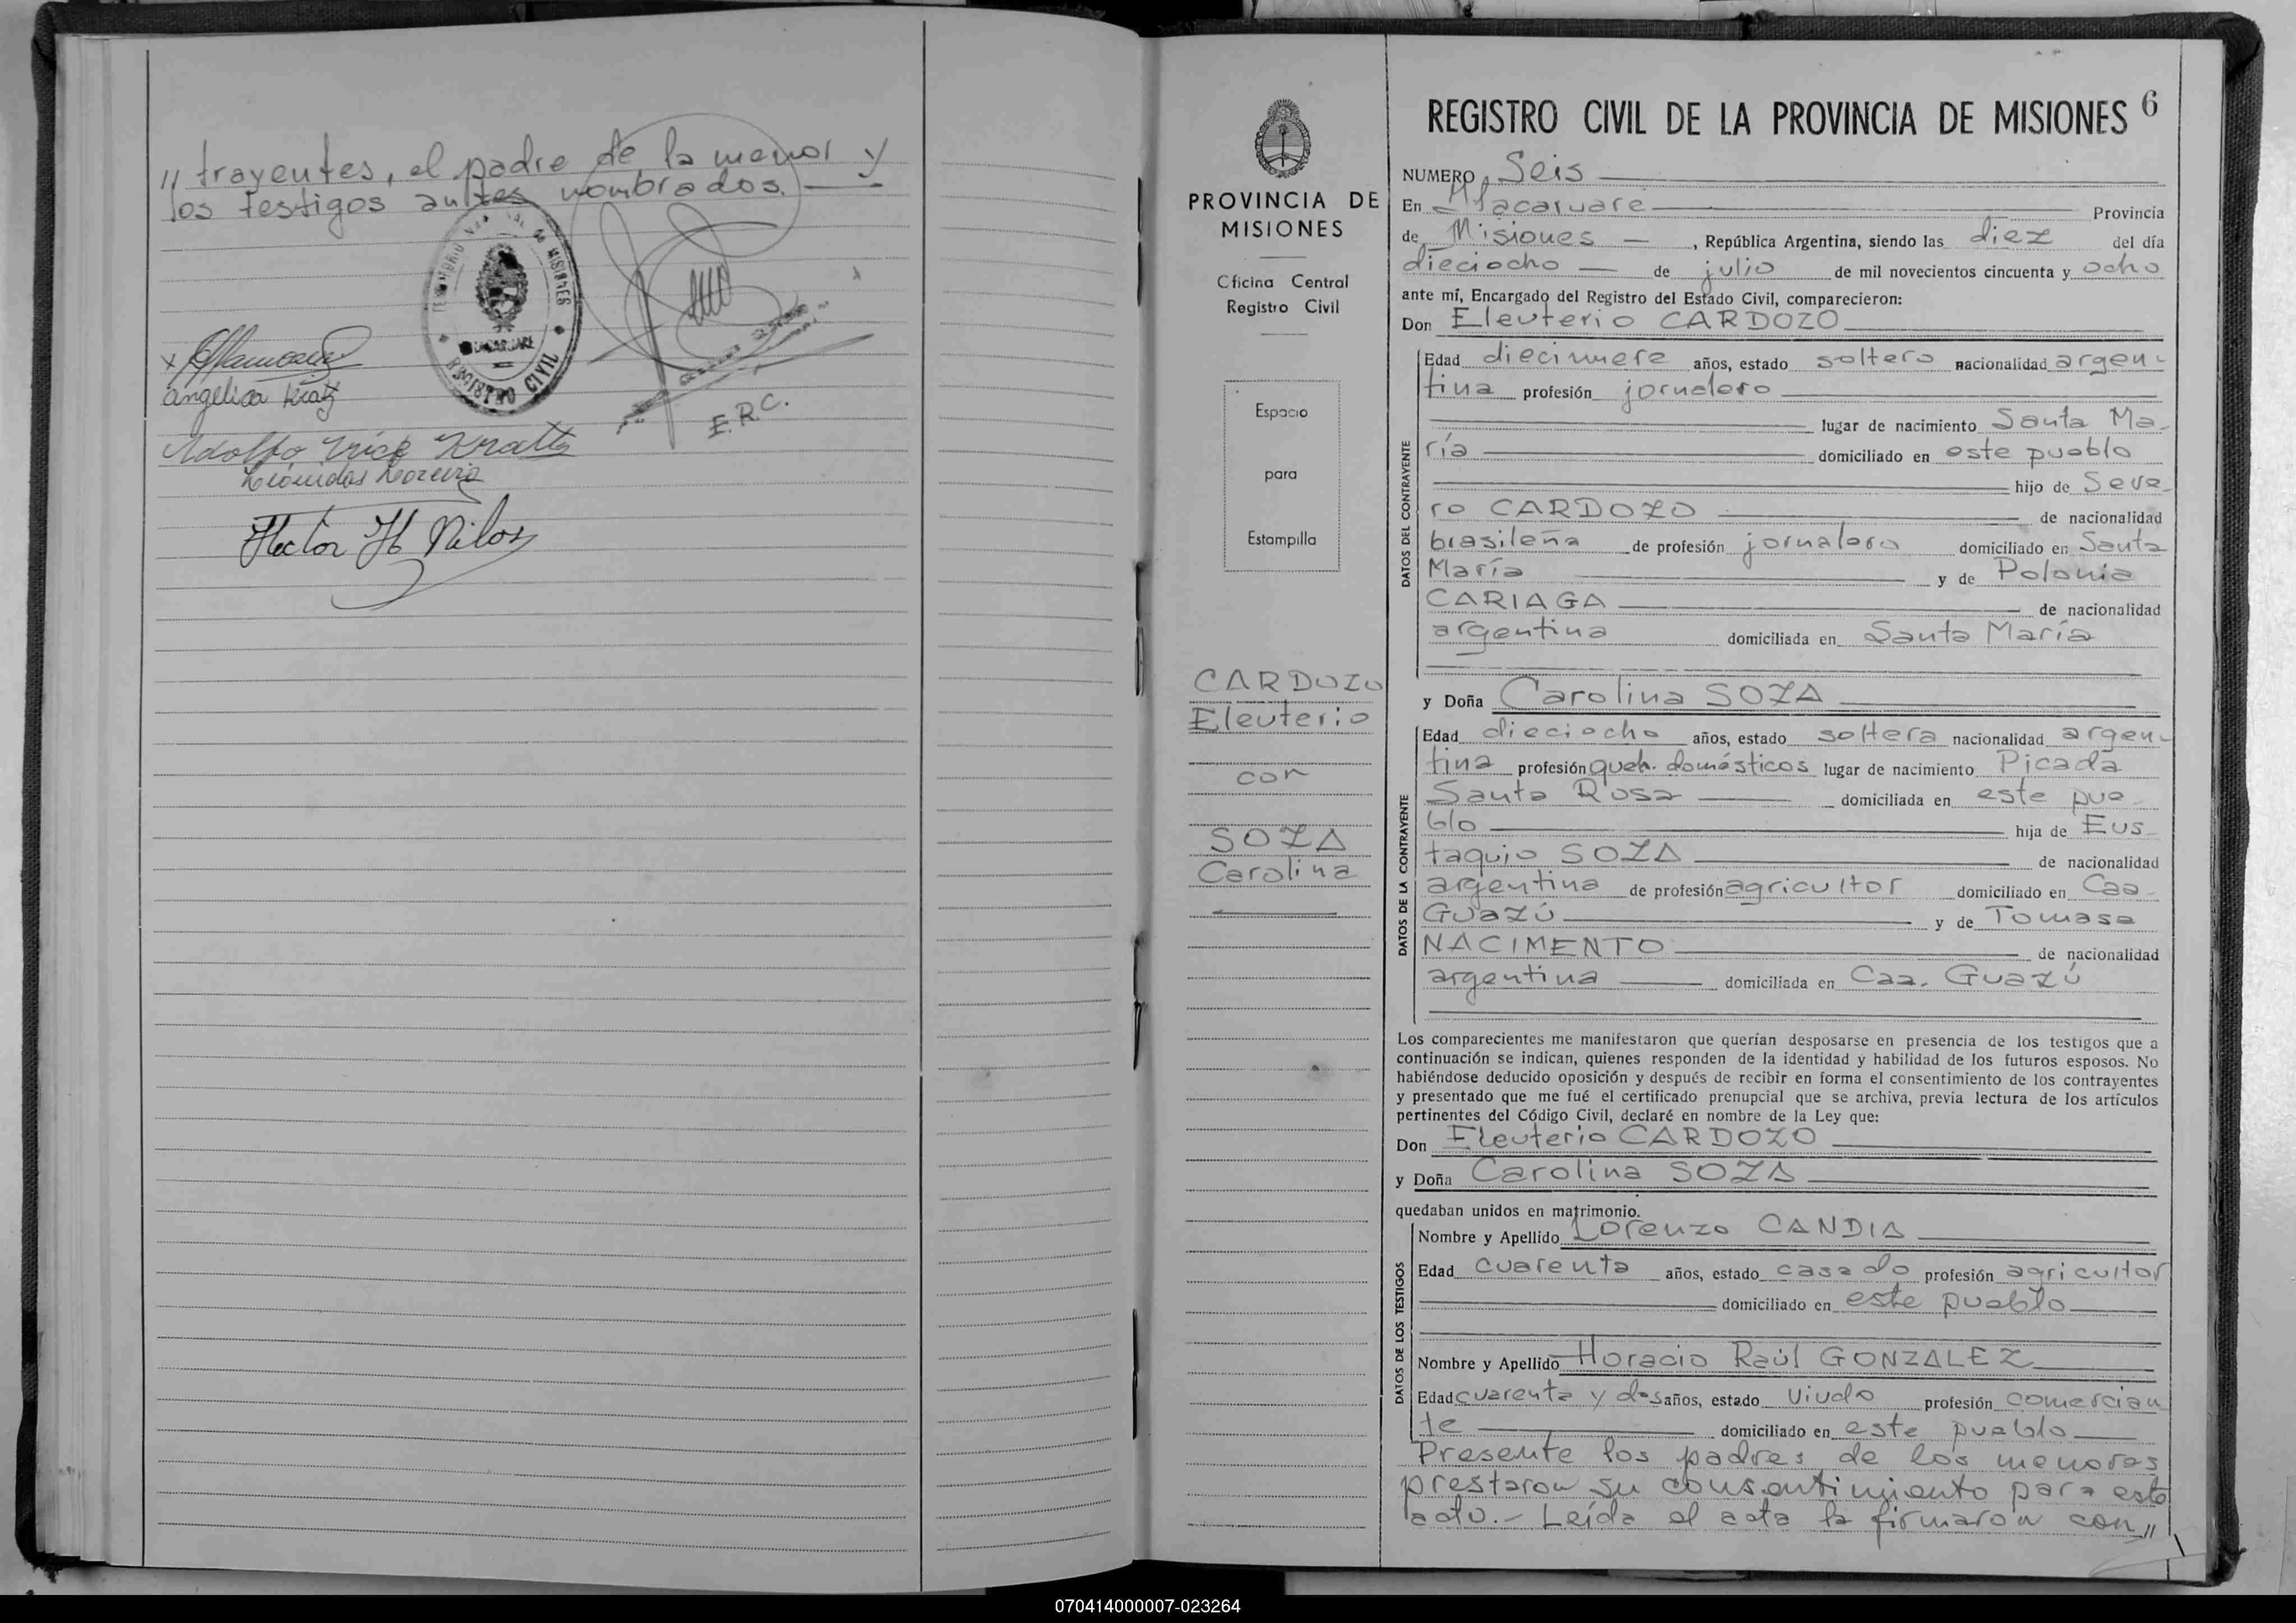 " trayentes, el padre de la menor y
los testigos antes nombrados. —
TERRITORIO NACIONAL DE MISIONES
REGISTRO CIVIL
E.R.C.
angelica Kratz
Adolfo Erick Kratz
Leónidas Moreira
Hector H
PROVINCIA DE
MISIONES
Oficina Central
Registro Civil
Espacio
para
Estampilla
CARDOZO
Eleuterio
con
SOZA
Carolina
REGISTRO CIVIL DE LA PROVINCIA DE MISIONES 6
NUMERO Seis
En Itacaruare Provincia
de Misiones — , República Argentina, siendo las diez del día
dieciocho — de julio de mil novecientos cincuenta y ocho
ante mí, Encargado del Registro del Estado Civil, comparecieron:
Don Eleuterio CARDOZO
DATOS DEL CONTRAYENTE
Edad diecinueve años, estado soltero nacionalidad argen-
tina profesión jornalero
lugar de nacimiento Santa Ma-
ría domiciliado en este pueblo
hijo de Seve-
ro CARDOZO de nacionalidad
brasileña de profesión jornalero domiciliado en Santa
María y de Polonia
CARIAGA de nacionalidad
argentina domiciliada en Santa María
y Doña Carolina SOZA
DATOS DE LA CONTRAYENTE
Edad dieciocho años, estado soltera nacionalidad argen-
tina profesión queh. domésticos lugar de nacimiento Picada
Santa Rosa domiciliada en este pue-
blo hija de Eus-
taquio SOZA de nacionalidad
argentina de profesión agricultor domiciliado en Caa-
Guazú y de Tomasa
NACIMENTO de nacionalidad
argentina domiciliada en Caa. Guazú
Los comparecientes me manifestaron que querían desposarse en presencia de los testigos que a
continuación se indican, quienes responden de la identidad y habilidad de los futuros esposos. No
habiéndose deducido oposición y después de recibir en forma el consentimiento de los contrayentes
y presentado que me fué el certificado prenupcial que se archiva, previa lectura de los artículos
pertinentes del Código Civil, declaré en nombre de la Ley que:
Don Eleuterio CARDOZO
y Doña Carolina SOZA
quedaban unidos en matrimonio.
DATOS DE LOS TESTIGOS
Nombre y Apellido Lorenzo CANDIA
Edad cuarenta años, estado casado profesión agricultor
domiciliado en este pueblo
Nombre y Apellido Horacio Raúl GONZALEZ
Edad cuarenta y dos años, estado viudo profesión comercian
te domiciliado en este pueblo
Presente los padres de los menores
prestaron su consentimiento para este
acto.- Leída el acta la firmaron con"
070414000007-023264